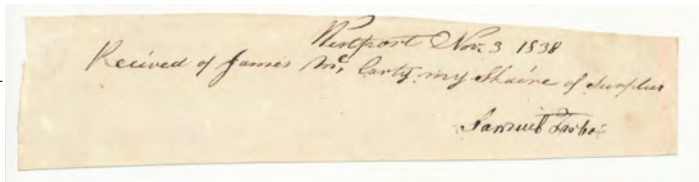 Westport Nov. 3 1838
Recived of James Mc Carty my Shaire of Surplus
Samuel